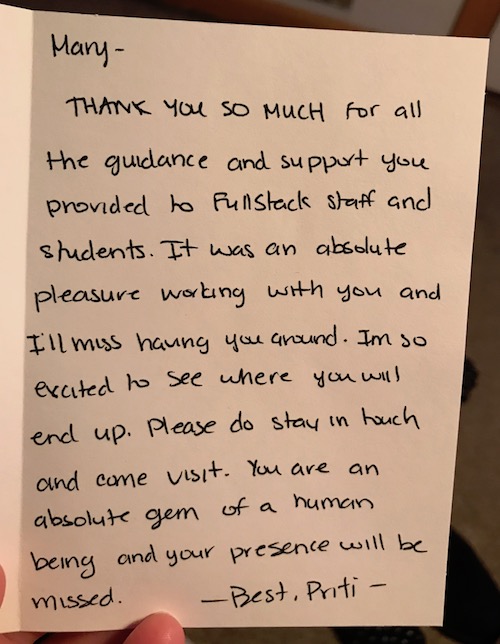 Mary-
THANK YOU SO MUCH for all
the guidance and support you
provided to Fullstack staff and
students. It was an absolute
pleasure working with you and
I'll miss having you around. Im so
excited to see where you will
end up. Please do stay in touch
and come visit. You are an
absolute gem of a human
being and your presence will be
missed. -Best, Priti-